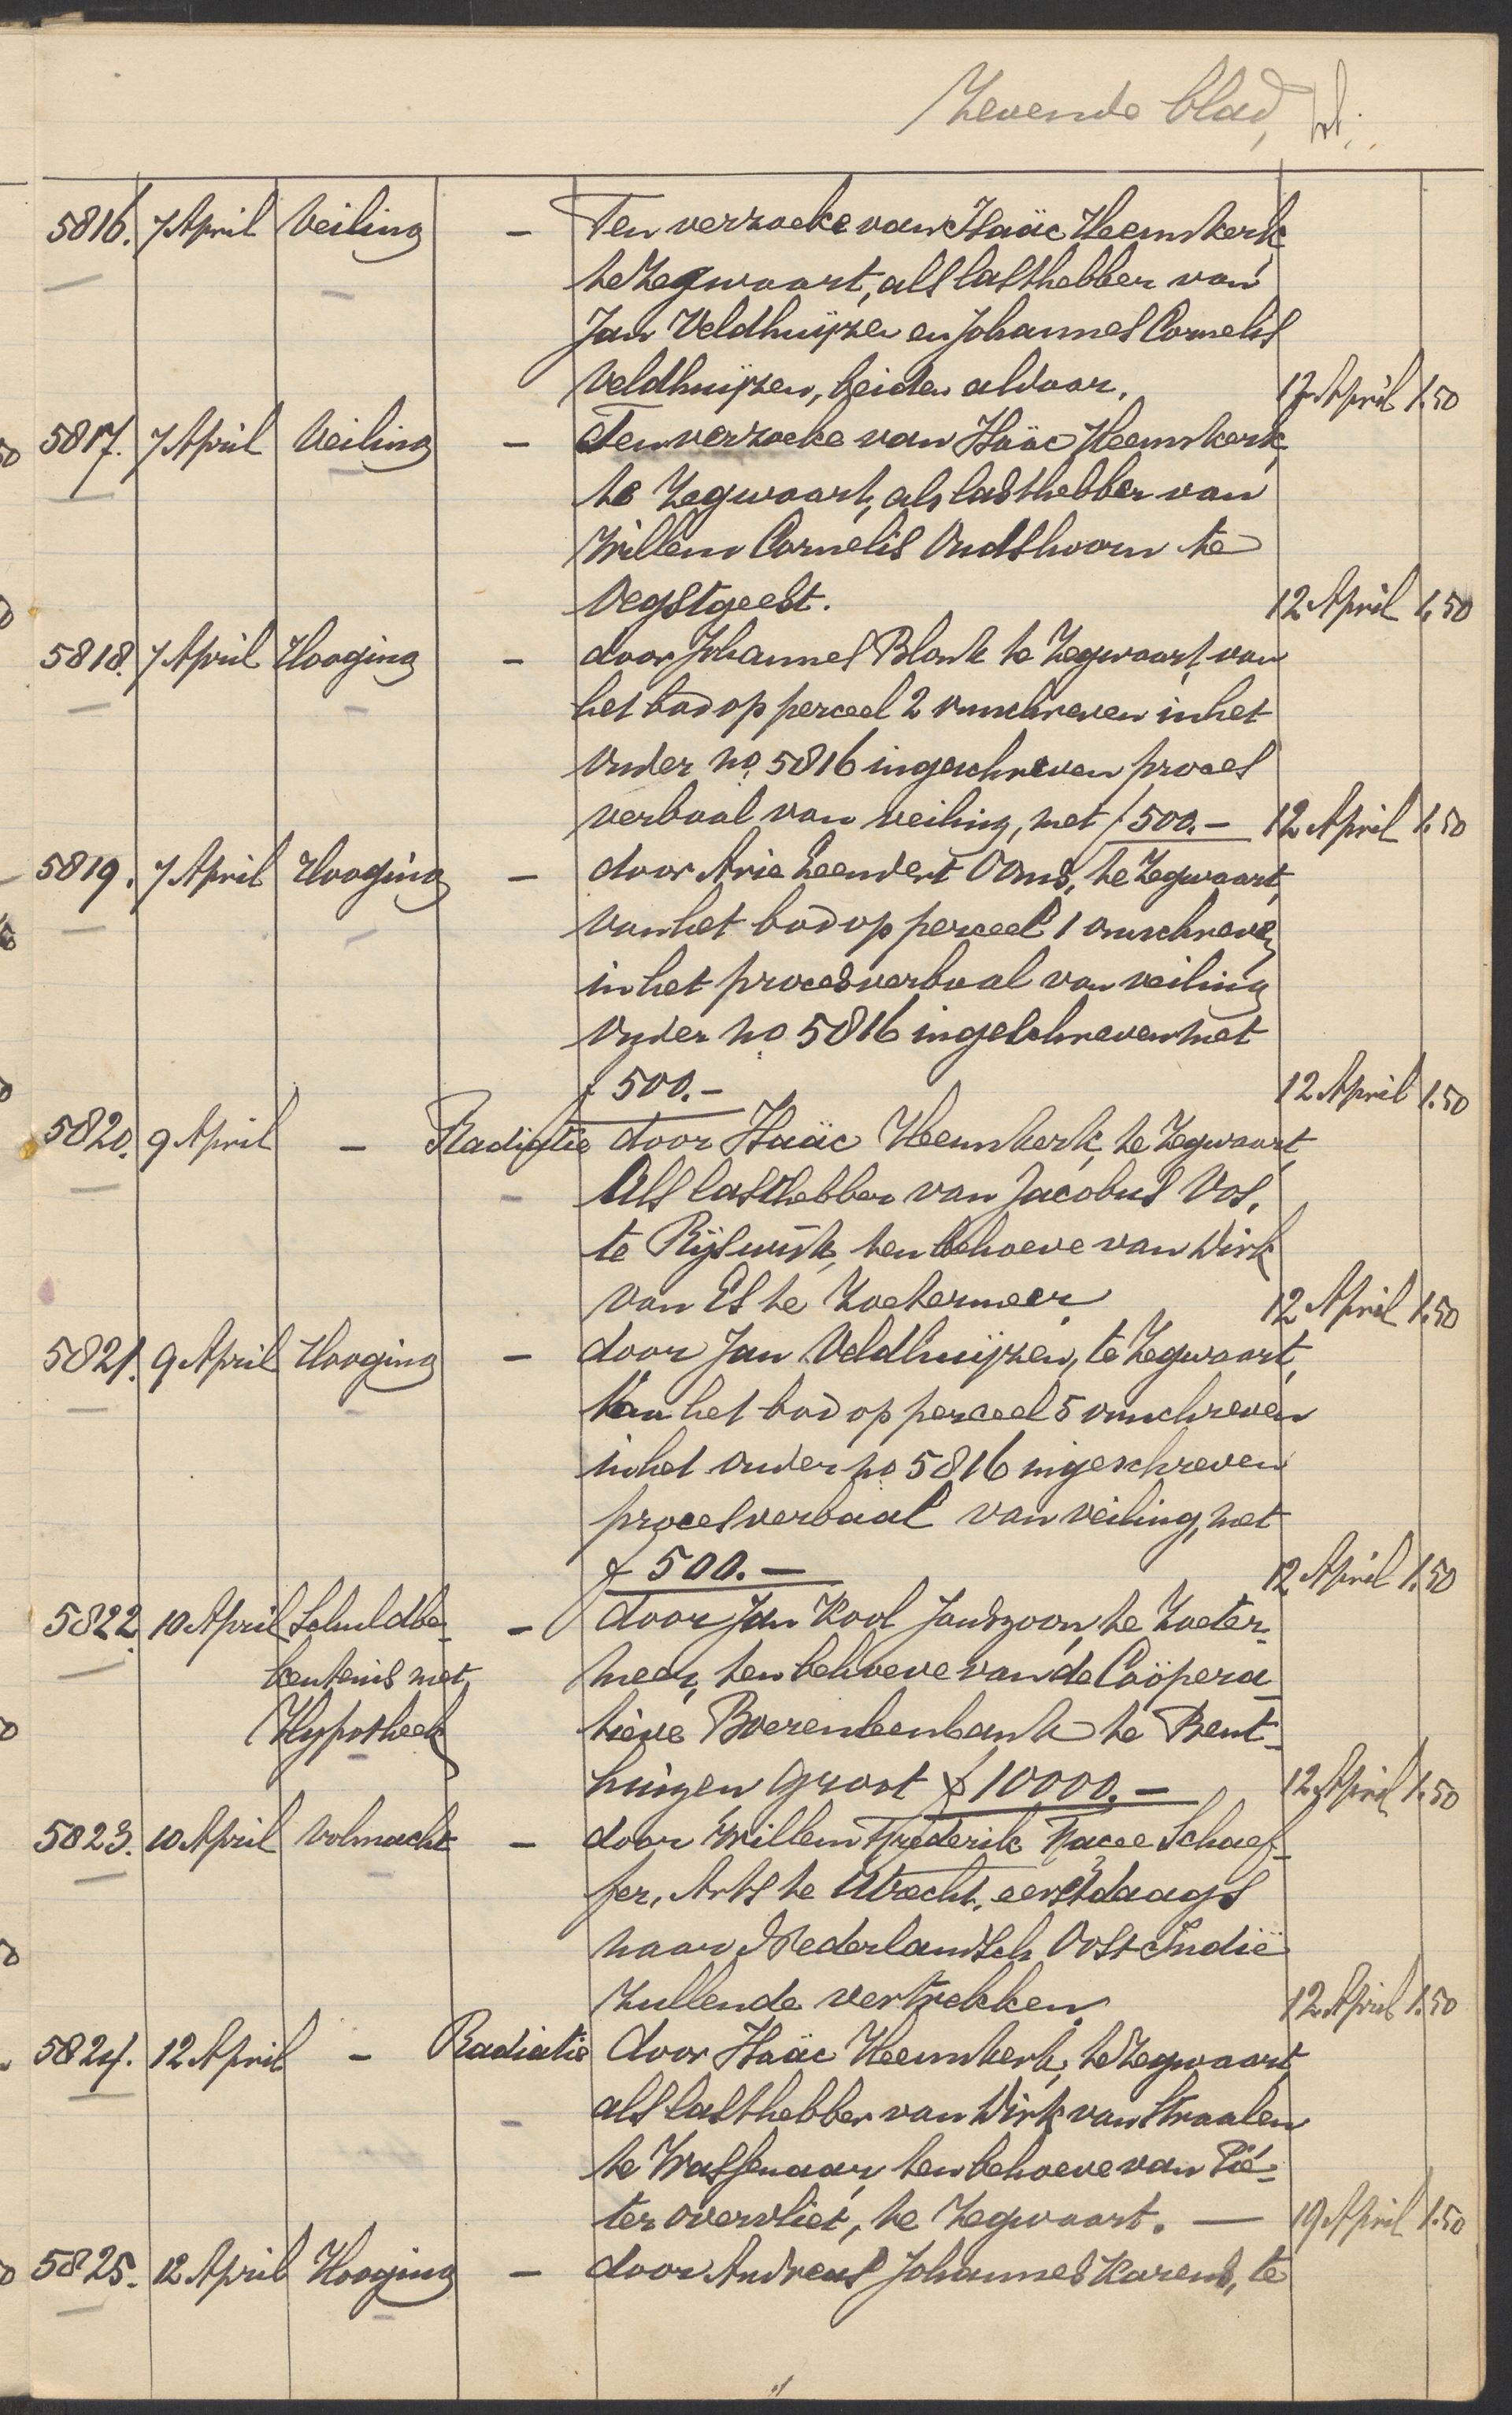 Zevende blad,
5816. 7 April Veiling - Ten verzoeke van Isaäc Heemskerk,
te Zegwaart, als lasthebber van
Jan Veldhuijzen en Johannes Cornelis
Veldhuijzen, beiden aldaar. 12 April 1.50
5817. 7 April Veiling - Ten verzoeke van Isaäc Heemskerk,
te Zegwaart, als lasthebber van
Willem Cornelis Oudshoorn te
Oegstgeest. 12 April 1.50
5818. 7 April Hooging - door Johannes Blonk te Zegwaart, van
het bod op perceel 2 omschreven in het
onder no. 5816 ingeschreven proces
verbaal van veiling, met f 500.- 12 April 1.50
5819. 7 April Hooging - door Arie Leendert Ooms, te Zegwaart,
van het bod op perceel 1 omschreven
in het procesverbaal van veiling
onder no. 5816 ingeschreven met
f 500.- 12 April 1.50
5820. 9 April - Radiatie door Isaäc Heemskerk, te Zegwaart,
als lasthebber van Jacobus Vos,
te Rijswijk, ten behoeve van Dirk
van Es te Zoetermeer. 12 April 1.50
5821. 9 April Hooging - door Jan Veldhuijzen, te Zegwaart,
van het bod op perceel 5 omschreven
in het onder no. 5816 ingeschreven
procesverbaal van veiling, met
f 500.- 12 April 1.50
5822. 10 April Schuldbe- - door Jan Kool Janszoon, te Zoeter-
kentenis met meer, ten behoeve van de Coöpera-
Hypotheek tieve Boerenleenbank te Bent-
huizen groot f 10000.- 12 April 1.50
5823. 10 April Volmacht - door Willem Frederik Schaef-
fer, Arts te Utrecht, eerstdaags
naar Nederlandsch Oost-Indië
zullende vertrekken. 12 April 1.50
5824. 12 April - Radiatie door Isaäc Heemskerk, te Zegwaart,
als lasthebber van Dirk van Straalen
te Wassenaar, ten behoeve van Pie-
ter Overvliet, te Zegwaart. - 19 April 1.50
5825. 12 April Hooging - door Andreas Johannes Karens, te